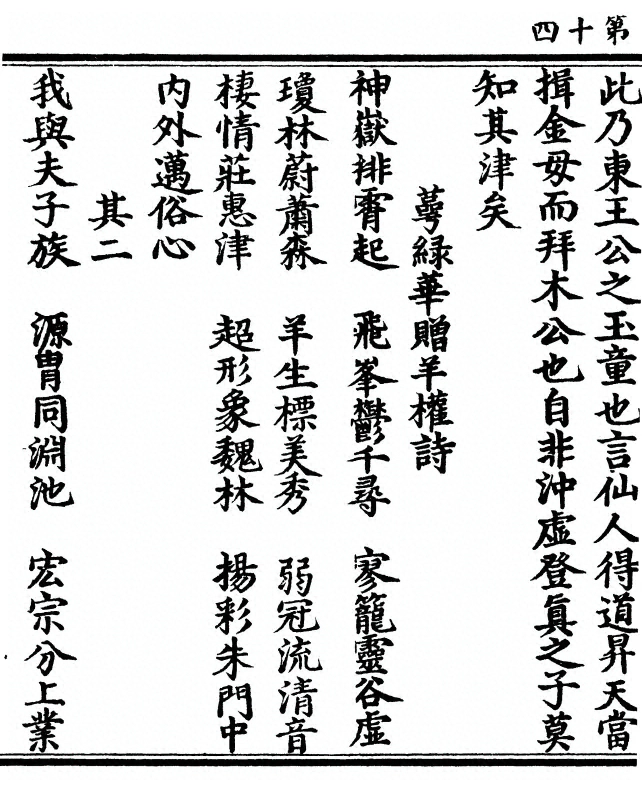 第十四
此乃東王公之玉童也言仙人得道昇天當
揖金毋而拜木公也自非沖虛登眞之子莫
知其津矣
萼綠華贈羊權詩
神嶽排霄起 飛峯鬱千尋 寥籠靈谷虛
瓊林蔚蕭森 羊生標美秀 弱冠流清音
棲情莊惠津 超形象魏林 揚彩朱門中
内外邁俗心
其二
我與夫子族 源胄同淵池 宏宗分上業